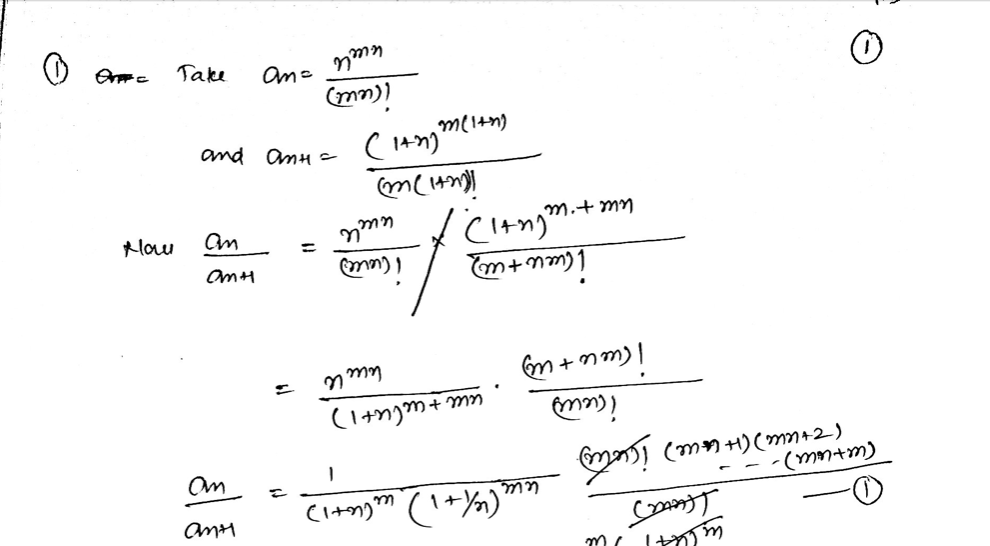 ① Take an = n^{mn} / (mn)! ①
and an+1 = (1+n)^{m(1+n)} / (m(1+n))!
Now an / an+1 = n^{mn} / (mn)! / (1+n)^{m.+mn} / (m+nm)!
= n^{mn} / (1+n)^{m+mn} . (m+nm)! / (mn)!
an / an+1 = 1 / (1+n)^m (1+1/n)^{mn} (mn)! (mn+1)(mn+2) - - - (mn+m) / (mn)! —①